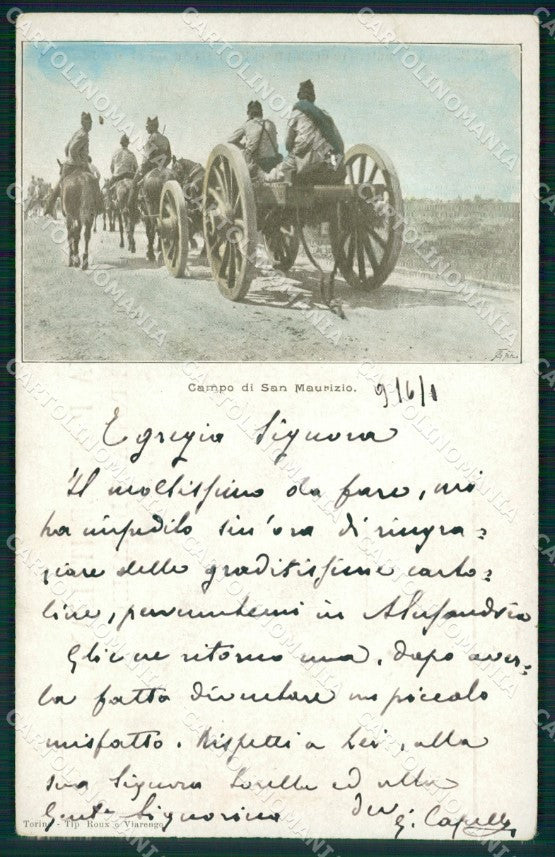 Campo di San Maurizio.
9/6/1
Egregia Signora
Il moltissimo da fare, mi
ha impedito sin'ora di ringra=
ziare delle graditissime carto=
line, pervenutemi in Alessandria
Gliene ritorno una, dopo aver=
la fatta diventare un piccolo
misfatto. Rispetti a Lei, alla
sua Signora Sorella ed alla
Gent.ma Signorina
G. Capelli
Torino - Tip. Roux e Viarengo
CARTOLINOMANIA